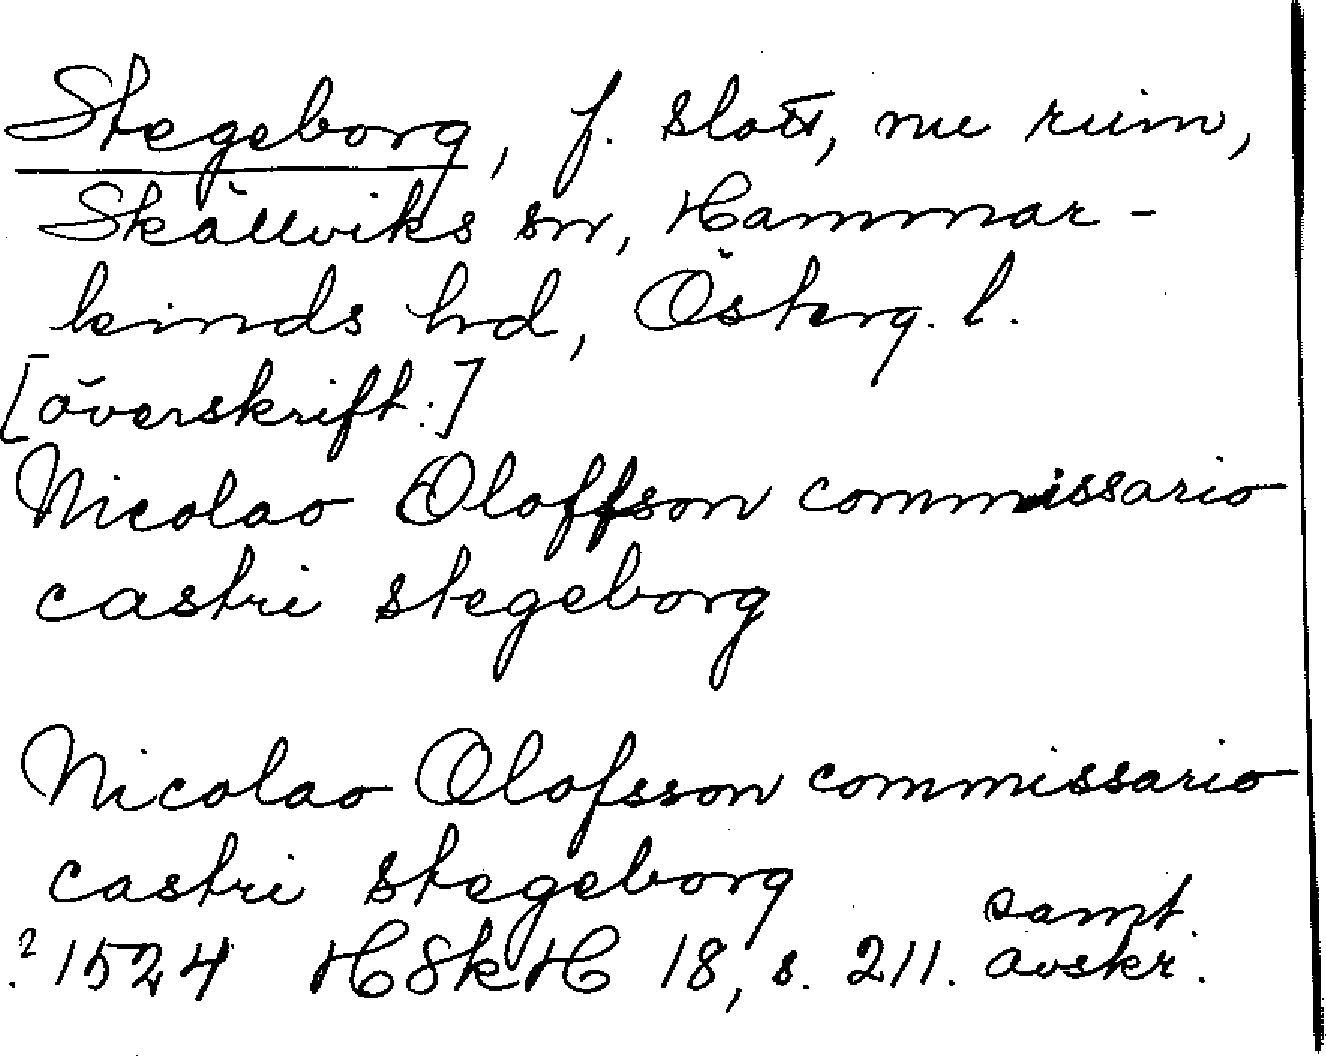 Stegeborg, f. slott, nu ruin,
Skällviks sn, Hammar-
kinds hd, Österg. l.
[överskrift:]
Nicolao Oloffson commissario
castri stegeborg
Nicolao Olofsson commissario
castri stegeborg
?1524 HSkH 18, s. 211. samt. avskr.